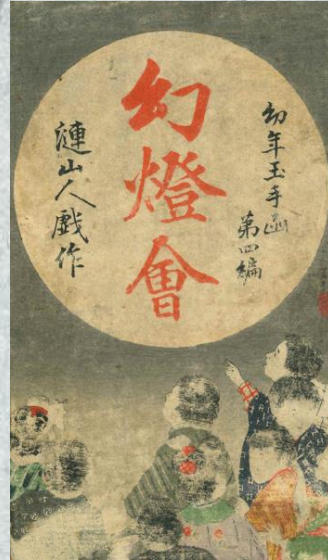 幼年玉手函
第四編
幻燈會
漣山人戲作